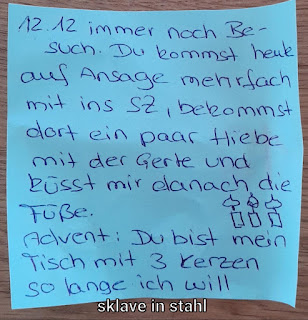 12.12 immer noch Be-
such. Du kommst heute
auf Ansage mehrfach
mit ins SZ, bekommst
dort ein paar Hiebe
mit der Gerte und
küsst mir danach die
Füße.
Advent: Du bist mein
Tisch mit 3 Kerzen
so lange ich will
sklave in stahl